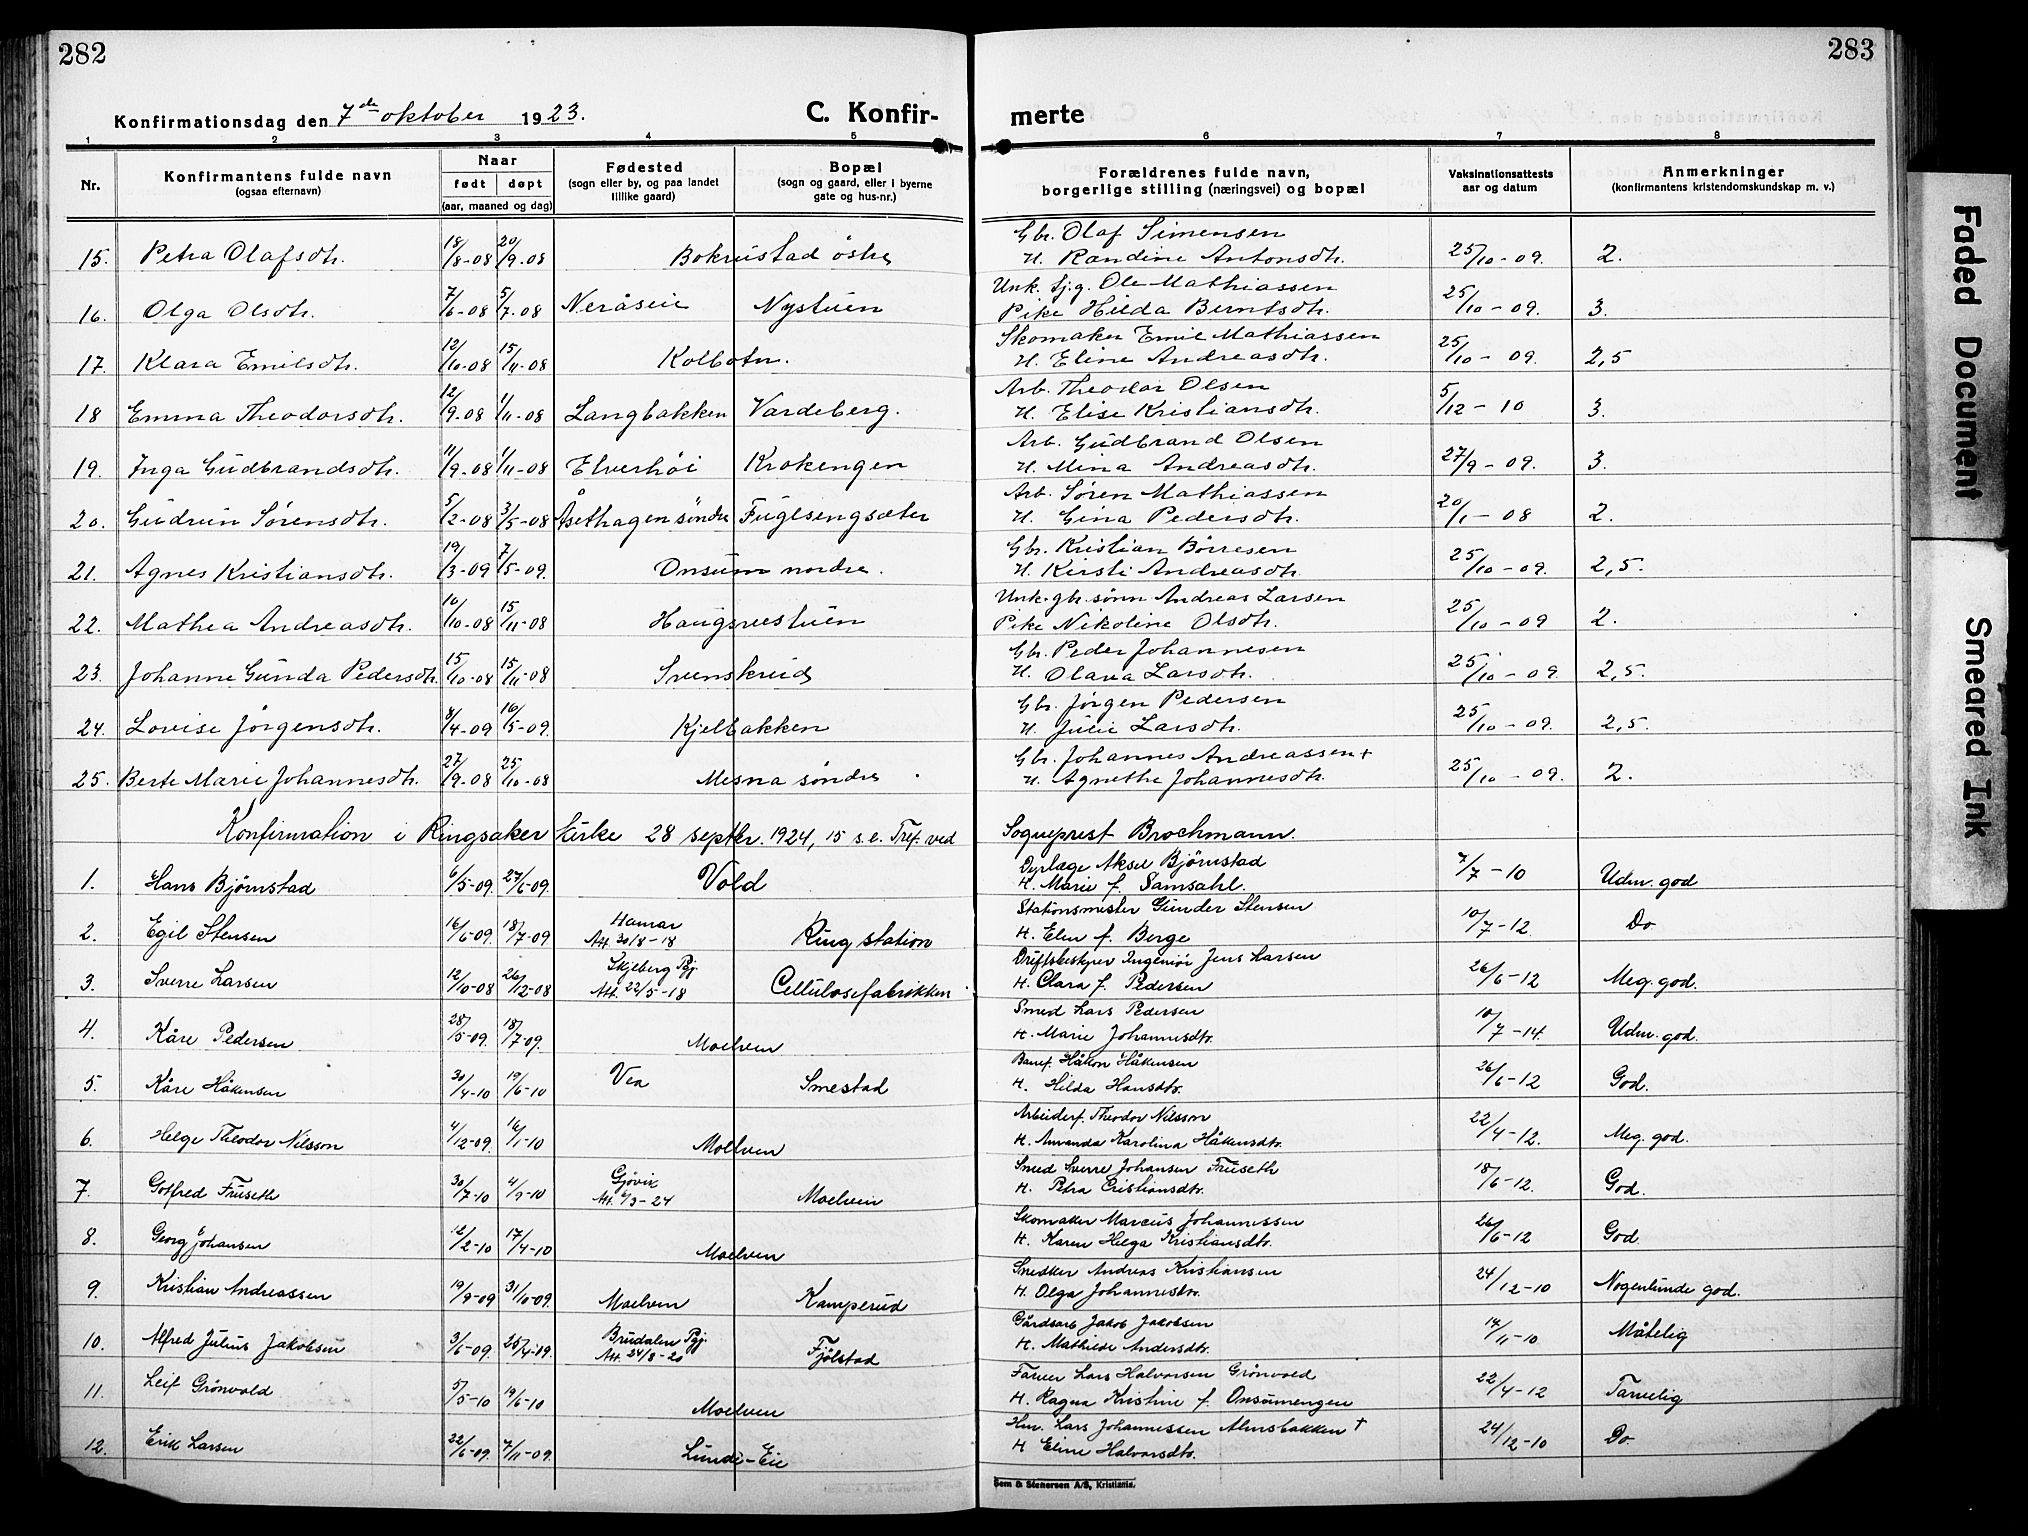 282
283
Konfirmationsdag den 7de oktober 1923.
C. Konfir-
merte
1 2 3 4 5 6 7 8
Nr.
Konfirmantens fulde navn
(ogsaa efternavn)
Naar
født døpt
(aar, maaned og dag)
Fødested
(sogn eller by, og paa landet
tillike gaard)
Bopæl
(sogn og gaard, eller i byerne
gate og hus-nr.)
Forældrenes fulde navn,
borgerlige stilling (næringsvei) og bopæl
Vaksinationsattests
aar og datum
Anmerkninger
(konfirmantens kristendomskundskap m. v.)
Gbr. Olaf Simensen
15. Petra Olafsdtr. 18/8-08 20/9-08 Bokrustad östre H. Randine Antonsdtr. 25/10-09. 2.
Unk. Gj.g. Ole Mathiassen
16. Olga Olsdtr. 7/6-08 5/7-08 Neråseie Nystuen Pike Hilda Berntsdtr. 25/10-09. 3.
Skomaker Emil Mathiassen
17. Klara Emilsdtr. 12/10-08 15/11-08 Kolbotn. H. Eline Andreasdtr. 25/10-09. 2,5
Arb. Theodor Olsen
18 Emma Theodorsdtr. 12/9-08 1/11-08 Langbakken Vardeberg. H. Elise Kristiansdtr. 5/12-10 3.
Arb. Gudbrand Olsen
19. Inga Gudbrandsdtr. 11/9-08 1/11-08 Elverhöi Krokengen H. Mina Andreasdtr. 27/9-09. 3.
Arb. Sören Mathiassen
20. Gudrun Sörensdtr. 5/2-08 3/5-08 Åsethagen söndre Fuglsengsæter H. Gina Pedersdtr. 20/1-08 2.
Gbr. Kristian Börresen
21. Agnes Kristiansdtr. 19/3-09 7/5-09. Onsum nordre. H. Kirsti Andreasdtr. 25/10-09. 2,5.
Unk. gbr. sönn Andreas Larsen
22. Mathea Andreasdtr. 10/10-08 15/11-08 Haugsvestuen Pike Nikoline Olsdtr. 25/10-09 2.
Gbr. Peder Johannesen
23. Johanne Gunda Pedersdtr. 15/10-08 15/11-08 Svenskrud H. Olava Larsdtr. 25/10-09. 2,5.
Gbr. Jörgen Pedersen
24. Lovise Jörgensdtr. 8/4-09 16/5-09. Kjelbakken H. Julie Larsdtr. 25/10-09. 2,5.
Gbr. Johannes Andreassen +
25. Berte Marie Johannesdtr. 27/9-08 25/10-08 Mesna söndre H. Agnethe Johannesdtr. 25/10-09. 2.
Konfirmation i Ringsaker kirke 28 septbr. 1924, 15 s.e. Tref. ved Sogneprest Brochmann.
Dyrlæge Aksel Björnstad
1. Hans Björnstad 6/5-09. 27/6-09. Vold H. Marie f. Samsahl. 7/7-10 Udm. god
Stationsmester Gunder Stensen
2. Egil Stensen 16/6-09. 18/7-09 Hamar Att. 30/8-18 Ring station H. Elen f. Berge 10/7-12. Do
Driftsbestyrer Ingeniör Jens Larsen
3. Sverre Larsen 12/10-08 26/12-08 Skjeberg Pgj. Att. 22/5-18 Cellulosefabrikken H. Clara f. Pedersen 26/6-12 Meg. god.
Smed Lars Pedersen
4. Kåre Pedersen 28/5-09. 18/7-09. Moelven H. Marie Johannesdtr. 10/7-14. Udm. god.
Banef. Håkon Håkensen
5. Kåre Håkensen 30/4-10 19/6-10 Vea Smestad H. Hilda Hansdtr. 26/6-12 God.
Arbeiderf. Theodor Nilsson
6. Helge Theodor Nilsson 4/12-09. 16/1-10 Moelven H. Amanda Karolina Håkensdtr. 22/4-12. Meg. god.
Smed Sverre Johansen Fruseth
7. Gotfred Fruseth 30/7-10 4/9-10 Gjövik Att. 6/3-24 Moelven H. Petra Cristiansdtr. 18/6-12. God.
Skomaker Marcus Johannessen
8. Georg Johansen 12/2-10 17/4-10 Moelven H. Karen Helga Kristiansdtr. 26/6-12 God
Snedker Andreas Kristiansen
9. Kristian Andreassen 19/9-09 31/10-09. Moelven Kamperud H. Olga Johannesdtr. 24/12-10 Nogenlunde god.
Gårdsarb. Jakob Jakobsen
10. Alfred Julius Jakobsen 3/6-09. 25/4-09. Brudalen Pgj. Att. 24/8-20 Fjölstad H. Mathilde Andersdtr. 14/11-10 Måtelig
Farver Lars Halvorsen Grönvold
11. Leif Grönvold 5/5-10 19/6-10 Moelven H. Ragna Kristine f. Onsumengen 22/4-12 Tarvelig
Hm. Lars Johannessen Almsbakken †
12. Erik Larsen 22/6-09. 7/11-09. Lunde-Eie H Eline Halvorsdtr. 24/12-10 Do.
Sem & Stenersen A/S, Kristiania.
Faded Document
Smeared Ink